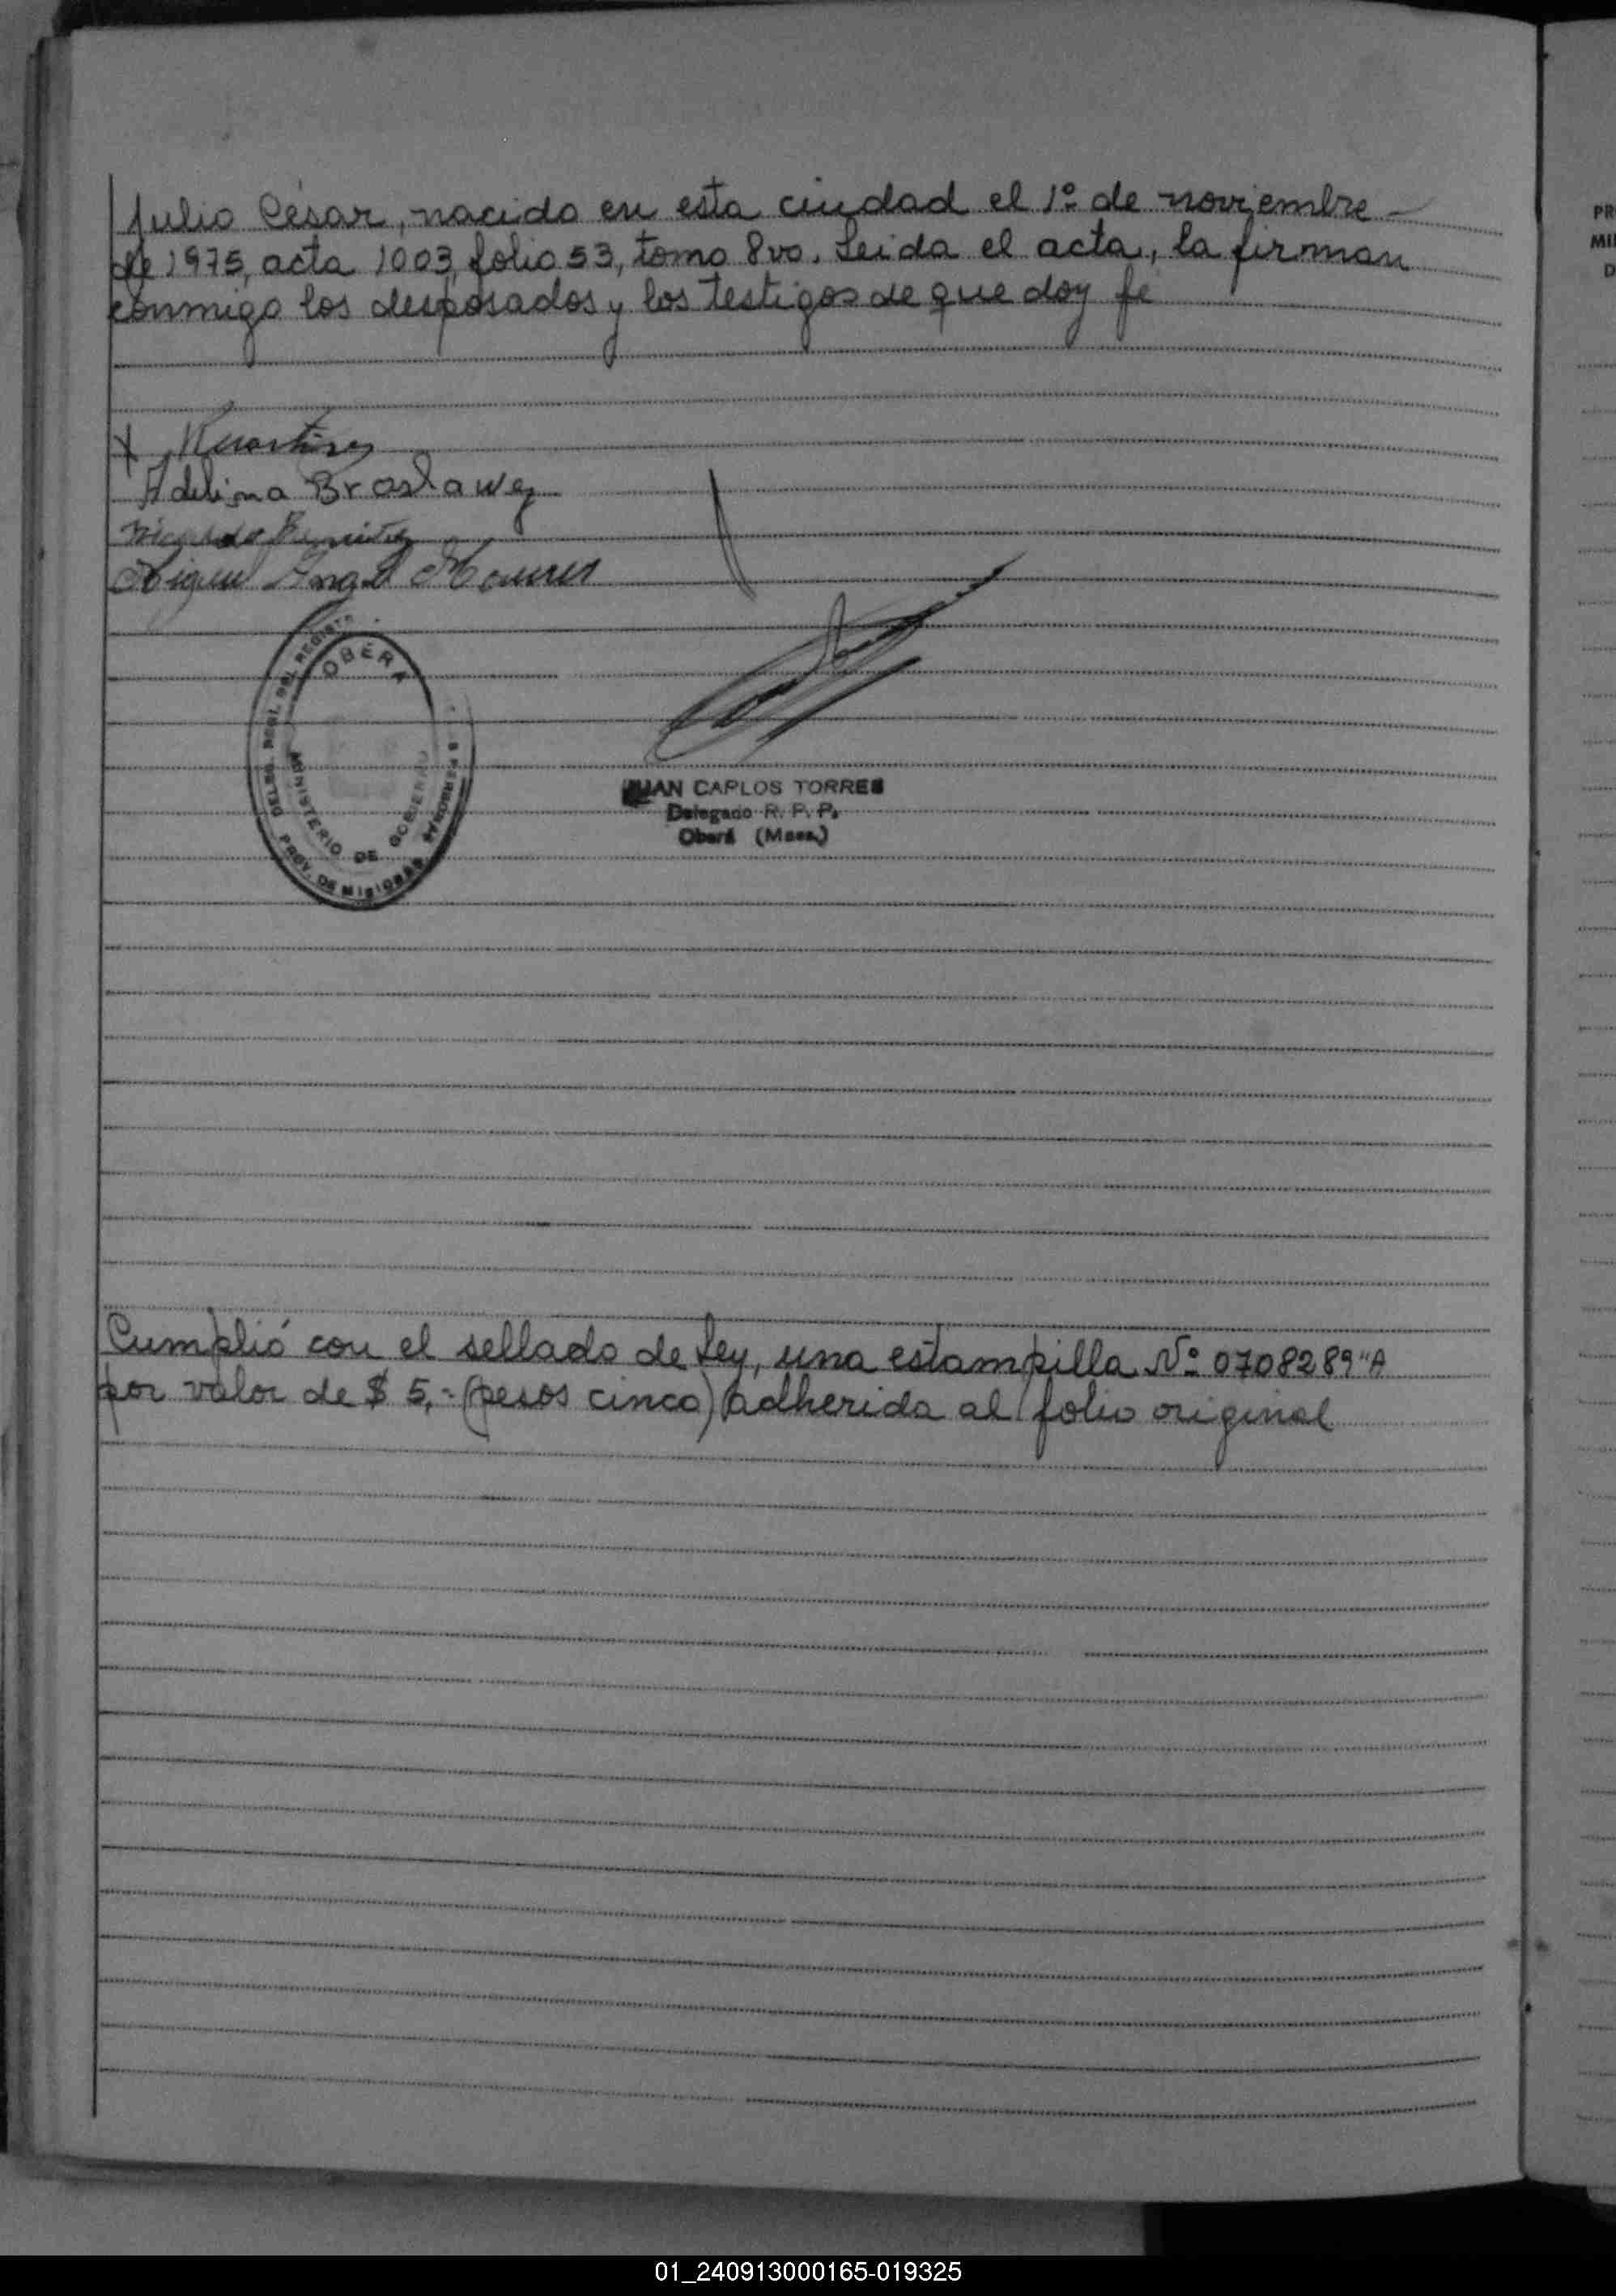 Julio César, nacido en esta ciudad el 1º de noviembre
de 1975, acta 1003, folio 53, tomo 8vo. Leida el acta, la firman
conmigo los desposados y los testigos de que doy fé
Adelina
Miguel Angel
OBERÁ
DELEG. REGL. DEL REGIST
MINISTERIO DE GOBIERNO
PROV. DE MISIONES
JUAN CARLOS TORRES
Delegado R. P. P.
Oberá (Mnes.)
Cumplió con el sellado de Ley, una estampilla Nº 0708289"A
por valor de $ 5,- (pesos cinco) adherida al folio original
PR
MI
D
01_240913000165-019325